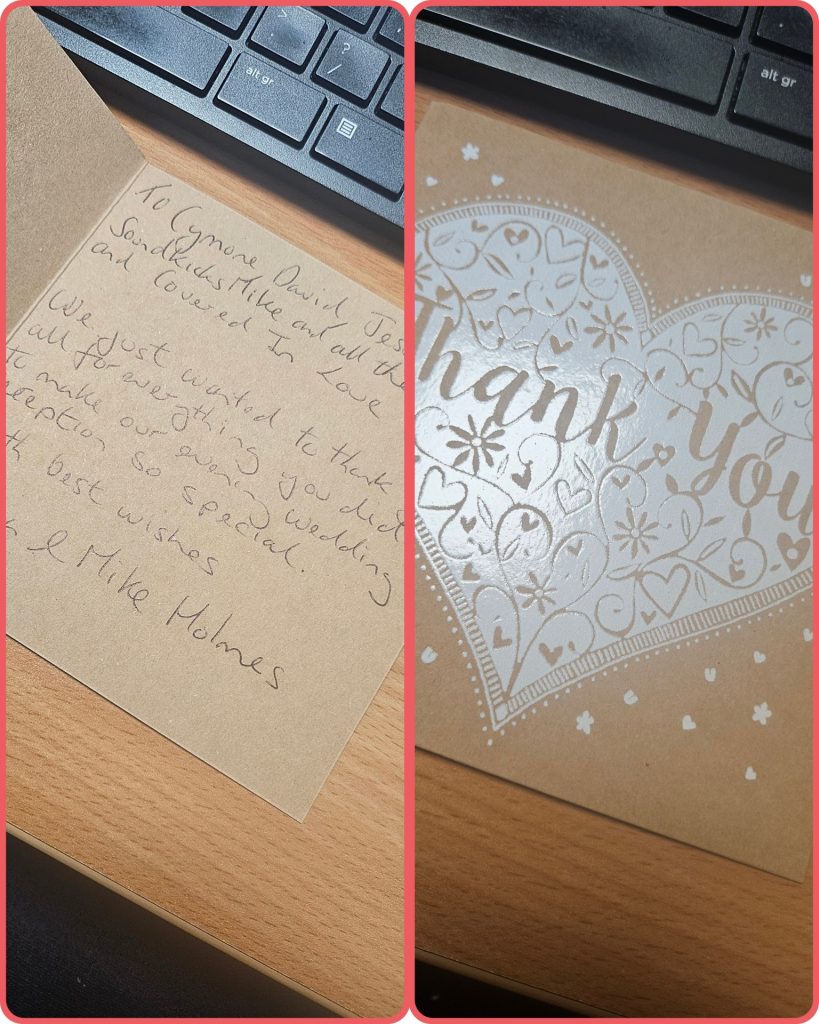 alt gr
To Cymone David Jes
Soundkicks Mike and all the
and Covered In Love
We just wanted to thank
all for everything you did
to make our evening wedding
reception so special.
best wishes
& Mike Holmes
alt gr
Thank You